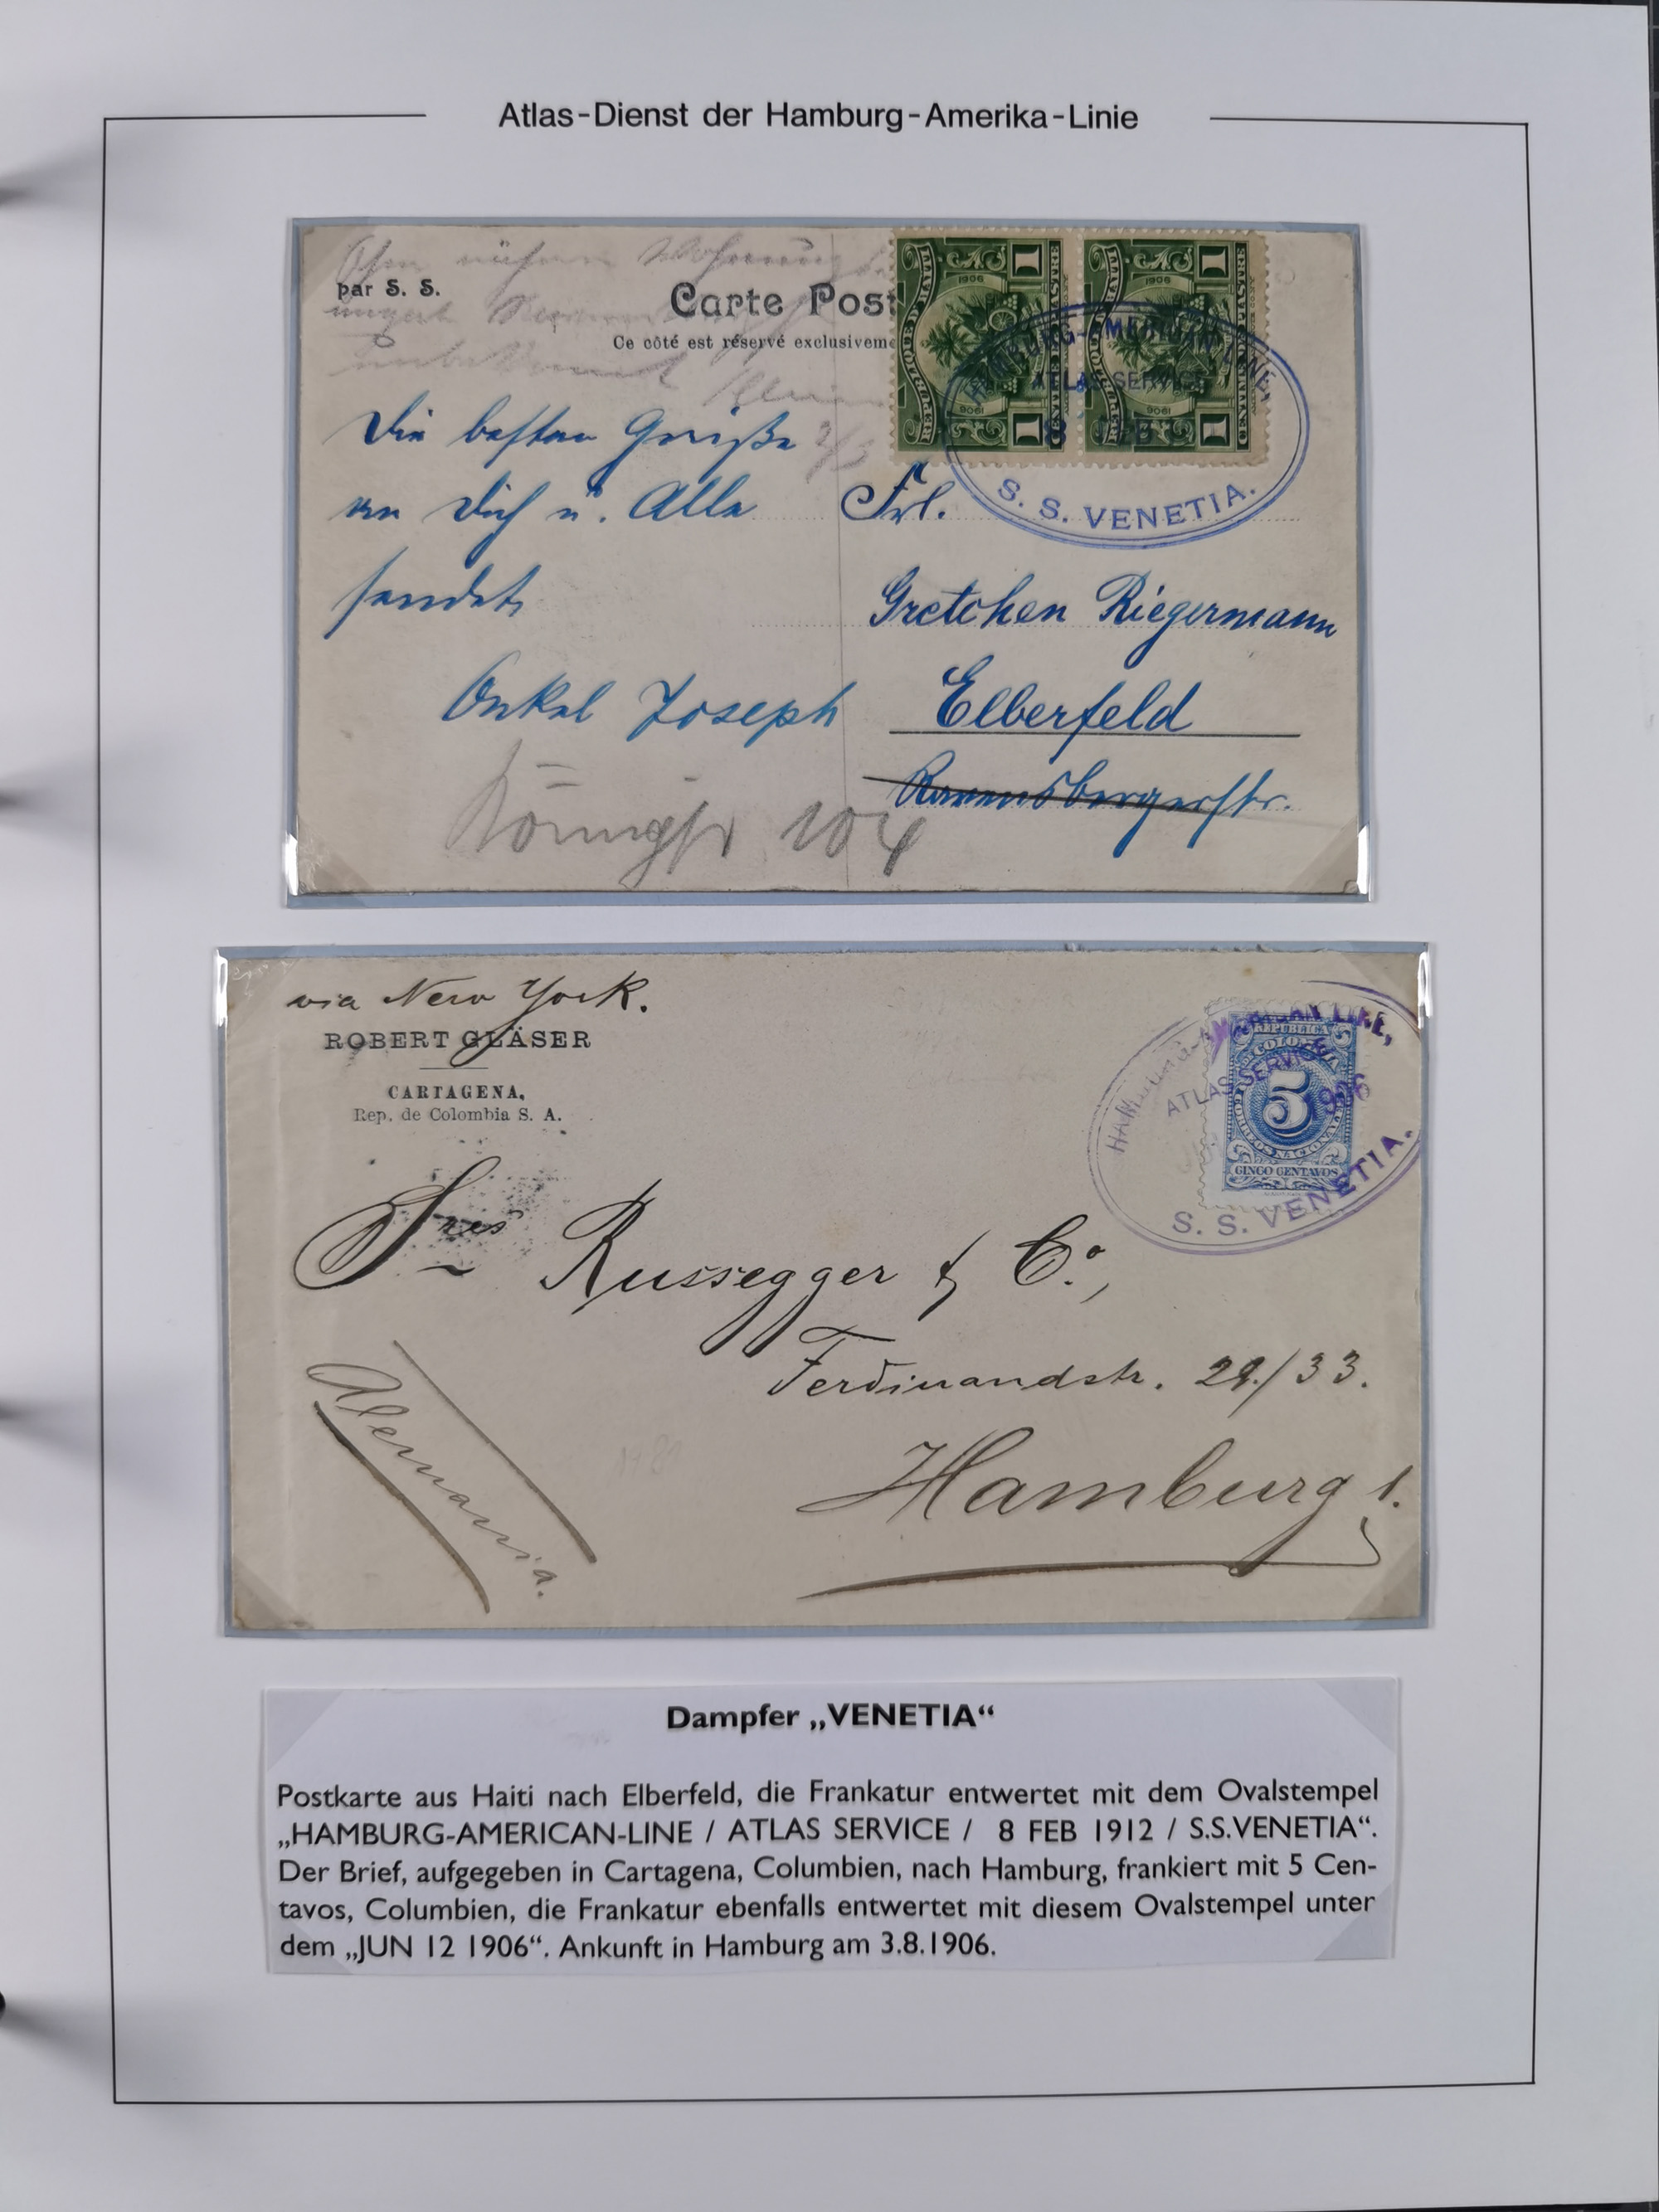 Atlas-Dienst der Hamburg-Amerika-Linie
par S. S.
Carte Post
Ce côté est réservé exclusiveme
1 1
1906 1906
1 1
HAMBURG-AMERICAN LINE,
ATLAS SERVICE
8 FEB
S. S. VENETIA.
Die besten Grüße
an Dich u. Alle
sendet
Onkel Joseph
Frl.
Gretchen Riegermann
Elberfeld
Ravensbergerstr.
Königstr 104
via New York.
ROBERT GLÄSER
CARTAGENA,
Rep. de Colombia S. A.
HAMBURG-AMERICAN LINE,
ATLAS SERVICE
1906
S. S. VENETIA.
REPUBLICA
DE COLOMBIA
5
CORREOS NACIONALES
CINCO CENTAVOS
Sres Russegger & Co.,
Ferdinandstr. 29./33.
Hamburg 1.
Alemania.
Dampfer „VENETIA“
Postkarte aus Haiti nach Elberfeld, die Frankatur entwertet mit dem Ovalstempel
„HAMBURG-AMERICAN-LINE / ATLAS SERVICE / 8 FEB 1912 / S.S.VENETIA“.
Der Brief, aufgegeben in Cartagena, Columbien, nach Hamburg, frankiert mit 5 Cen-
tavos, Columbien, die Frankatur ebenfalls entwertet mit diesem Ovalstempel unter
dem „JUN 12 1906“. Ankunft in Hamburg am 3.8.1906.